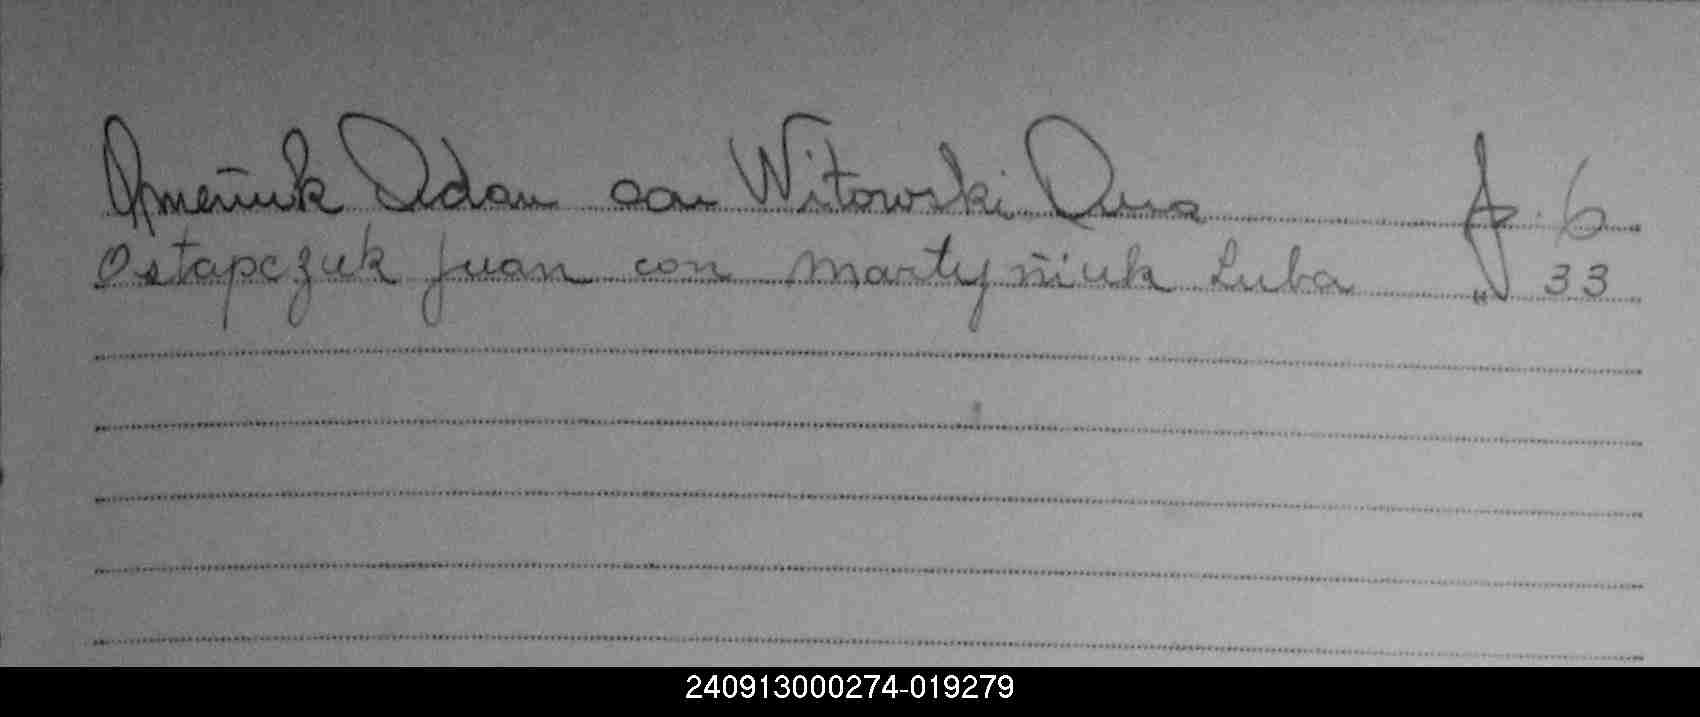 Omeñuk Adan con Witowski Ana f. 6
Ostapczuk Juan con Martyñiuk Luba " 33
240913000274-019279